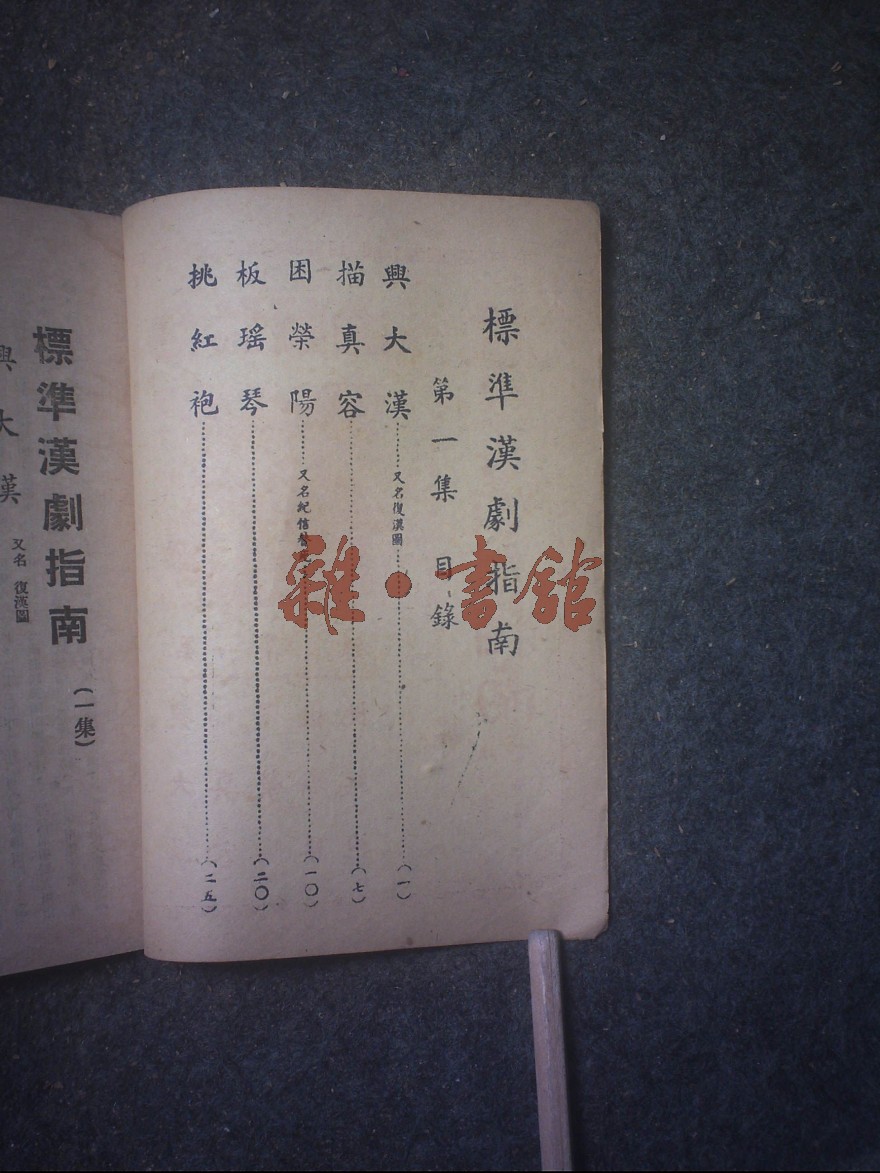 標準漢劇指南
第一集 目錄
興大漢……又名復漢圖……(一)
描真容……(七)
困榮陽……又名紀信……(一〇)
板瑤琴……(二〇)
挑紅袍……(二五)
標準漢劇指南(一集)
興大漢 又名 復漢圖
雜·書館